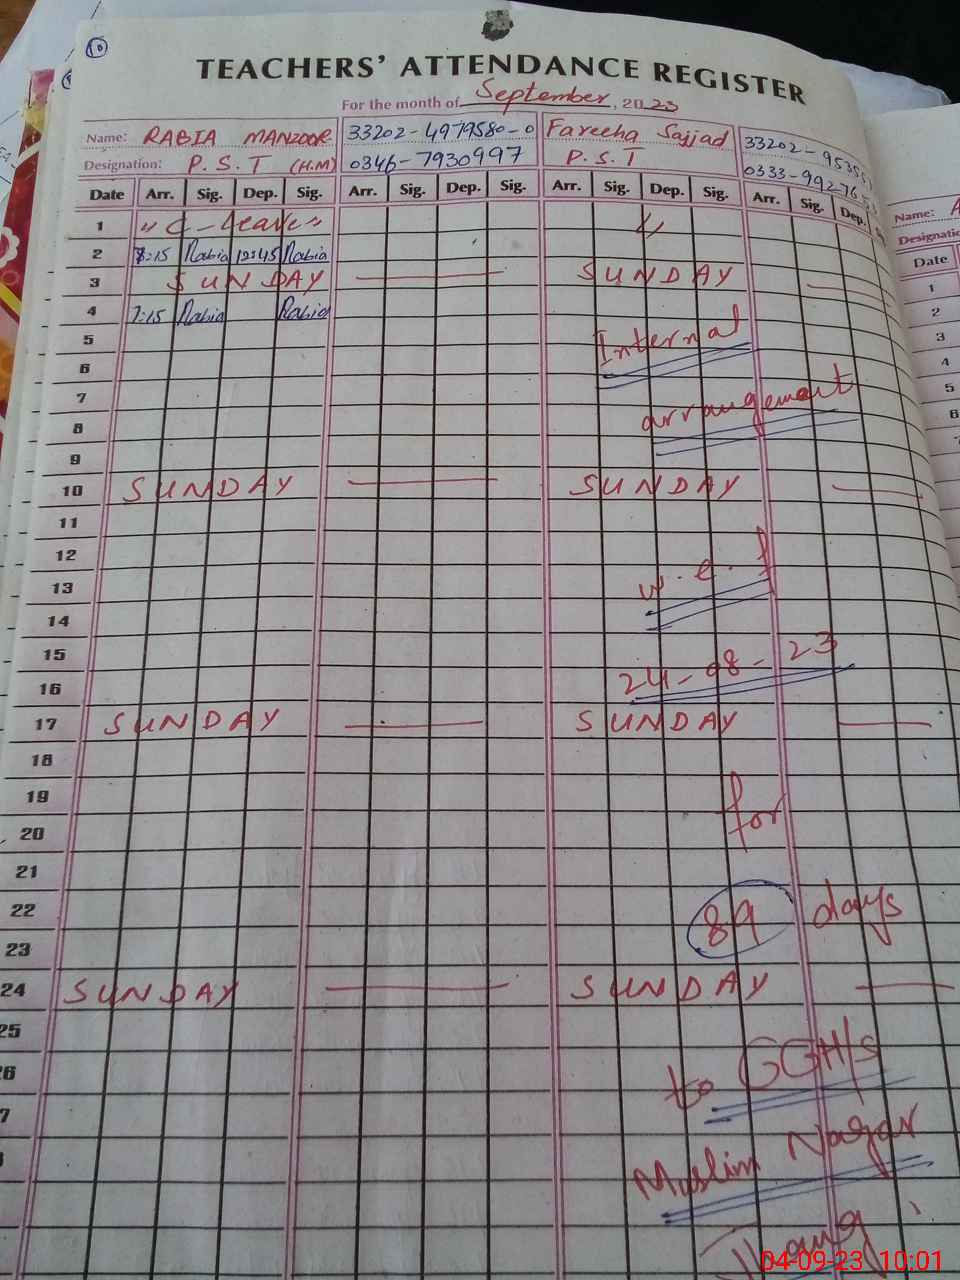 10
TEACHERS' ATTENDANCE REGISTER
For the month of September, 2023
Name: RABIA MANZOOR 33202-4979580-0 Fareeha Sajjad 33202-
Designation: P.S.T (H.M) 0346-7930997 P.S.T 0333-
Date Arr. Sig. Dep. Sig. Arr. Sig. Dep. Sig. Arr. Sig. Dep. Sig. Arr. Sig. Dep.
1 "C-leave" "
2 :15 Rabia 12:45 Rabia
3 SUNDAY SUNDAY
4 7:15 Rabia Rabia
5 Internal
6
7 arrangement
8
9
10 SUNDAY SUNDAY
11
12
13 w.e.f
14
15
16 24-08-23
17 SUNDAY SUNDAY
18
19
20 for
21
22 89 days
23
24 SUNDAY SUNDAY
25
6 to GGHS
7
Muslim Nagar
Jhang
Name: A
Date
1
2
3
4
5
6
04-09-23 10:01